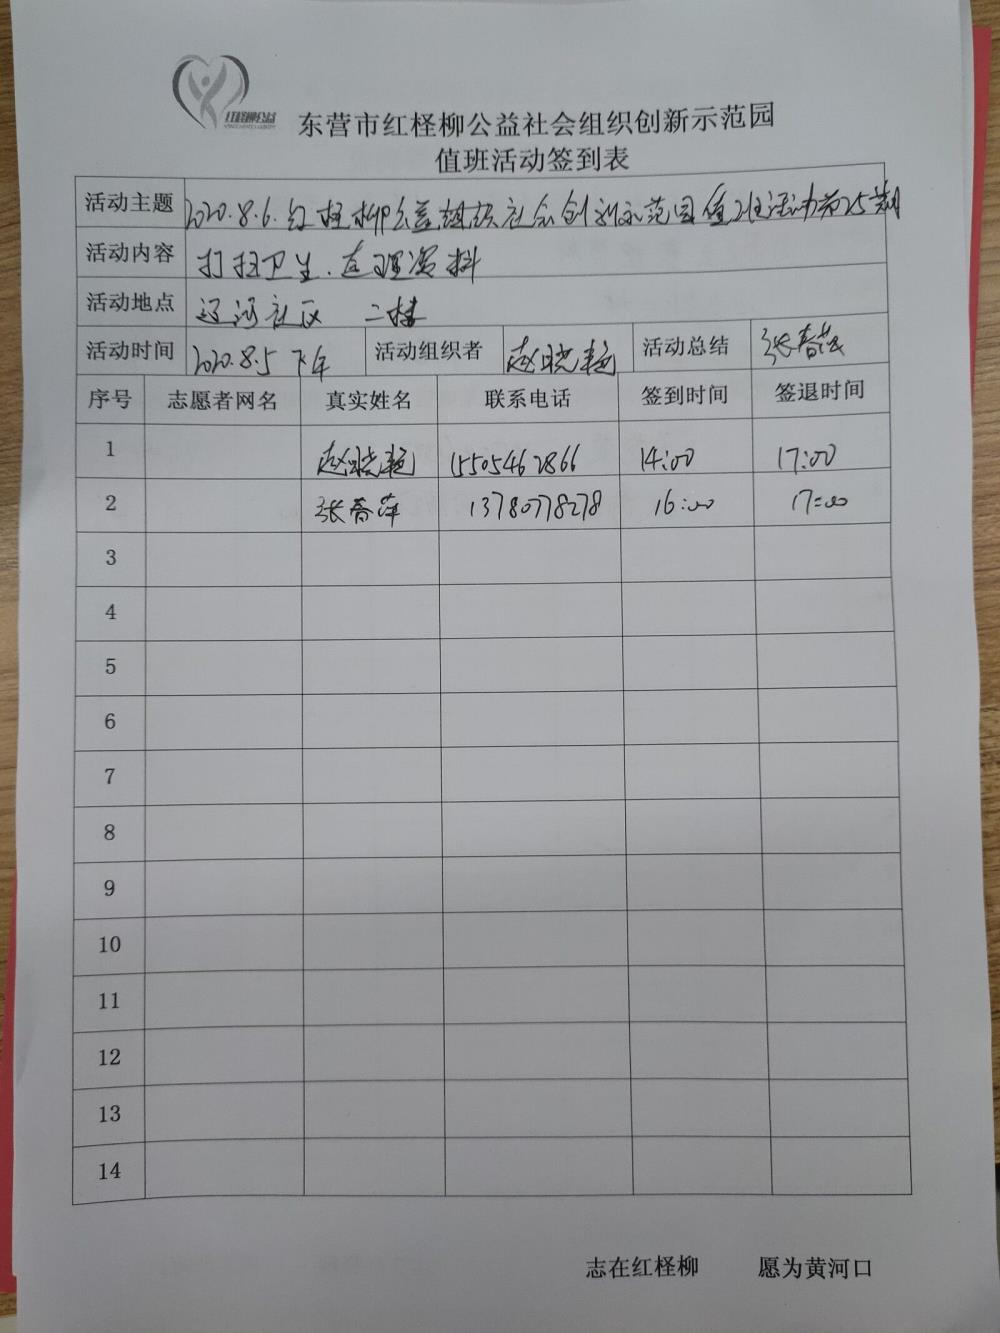 红柽柳公益
东营市红柽柳公益社会组织创新示范园
值班活动签到表
活动主题 2020.8.6.红柽柳公益组织社会创新示范园值班活动第25期
活动内容 打扫卫生.整理资料
活动地点 辽河社区 二楼
活动时间 2020.8.5 下午 活动组织者 赵晓艳 活动总结 张春萍
序号 志愿者网名 真实姓名 联系电话 签到时间 签退时间
1 赵晓艳 15505462866 14:00 17:00
2 张春萍 13780778278 16:00 17:00
3
4
5
6
7
8
9
10
11
12
13
14
志在红柽柳 愿为黄河口